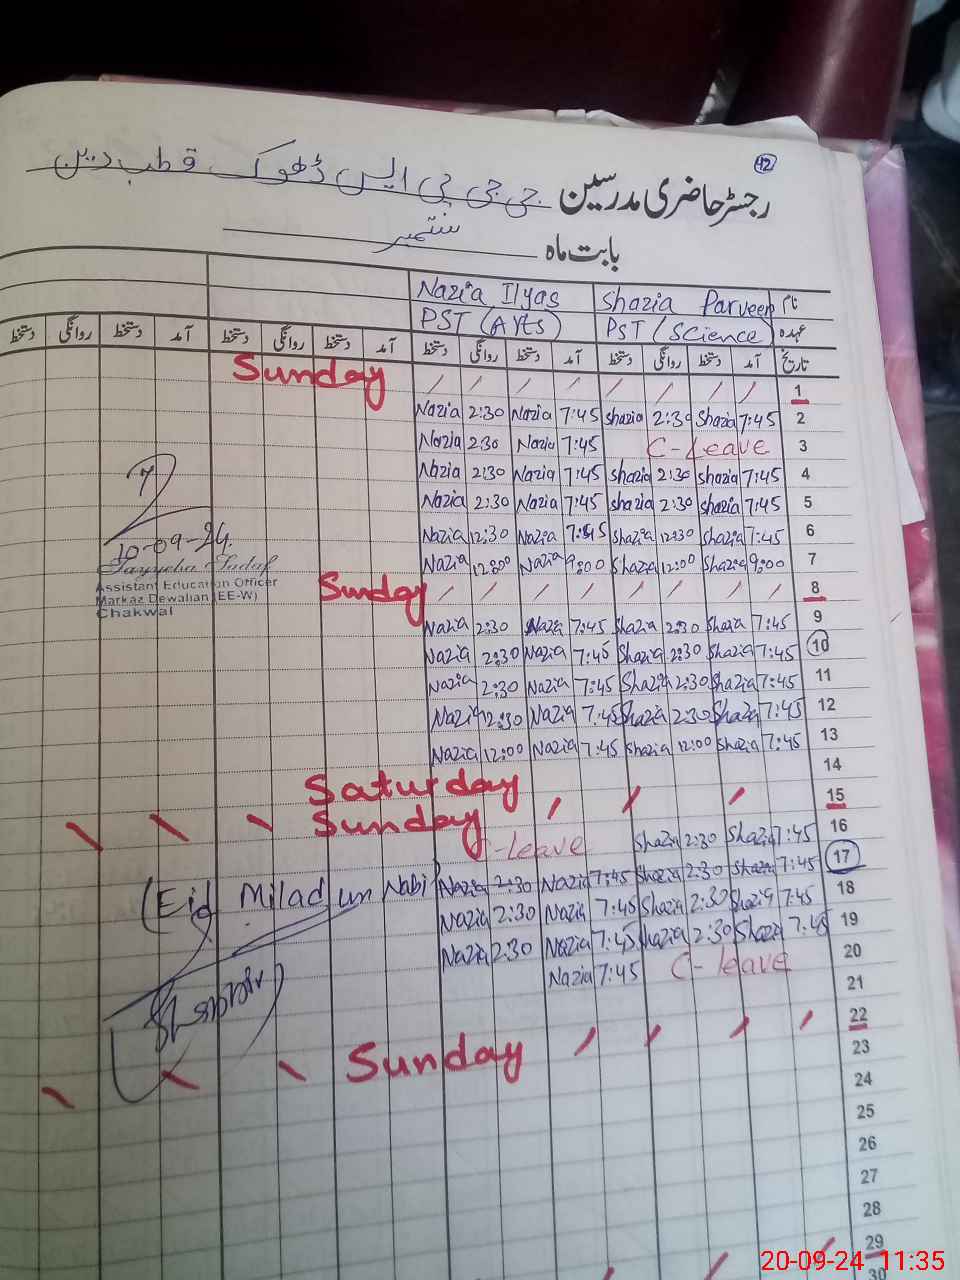 12
رجسٹر حاضری مدرسین جی جی پی ایس ڈھوک قطب دین
بابت ماہ ستمبر
نام Shazia Parveen Nazia Ilyas
عہدہ PST (Science) PST (Arts)
تاریخ آمد دستخط روانگی دستخط آمد دستخط روانگی دستخط آمد دستخط روانگی دستخط آمد دستخط روانگی دستخط
Sunday 1
Nazia 2:30 Nazia 7:45 Shazia 2:30 Shazia 7:45 2
Nazia 2:30 Nazia 7:45 C-Leave 3
Nazia 2:30 Nazia 7:45 Shazia 2:30 Shazia 7:45 4
Nazia 2:30 Nazia 7:45 Shazia 2:30 Shazia 7:45 5
Nazia 12:30 Nazia 7:45 Shazia 12:30 Shazia 7:45 6
Nazia 12:00 Nazia 9:00 Shazia 12:00 Shazia 9:00 7
10-09-24.
Tayyeba Sadaf
Assistant Education Officer
Markaz Dewalian (EE-W)
Chakwal
Sunday 8
Nazia 2:30 Nazia 7:45 Shazia 2:30 Shazia 7:45 9
Nazia 2:30 Nazia 7:45 Shazia 2:30 Shazia 7:45 10
Nazia 2:30 Nazia 7:45 Shazia 2:30 Shazia 7:45 11
Nazia 2:30 Nazia 7:45 Shazia 2:30 Shazia 7:45 12
Nazia 12:00 Nazia 7:45 Shazia 12:00 Shazia 7:45 13
Saturday 14
Sunday 15
C-leave Shazia 2:30 Shazia 7:45 16
(Eid Milad un Nabi) Nazia 2:30 Nazia 7:45 Shazia 2:30 Shazia 7:45 17
Nazia 2:30 Nazia 7:45 Shazia 2:30 Shazia 7:45 18
Nazia 2:30 Nazia 7:45 Shazia 2:30 Shazia 7:45 19
Nazia 7:45 C-leave 20
21
Sunday 22
23
24
25
26
27
28
29
30
20-09-24 11:35